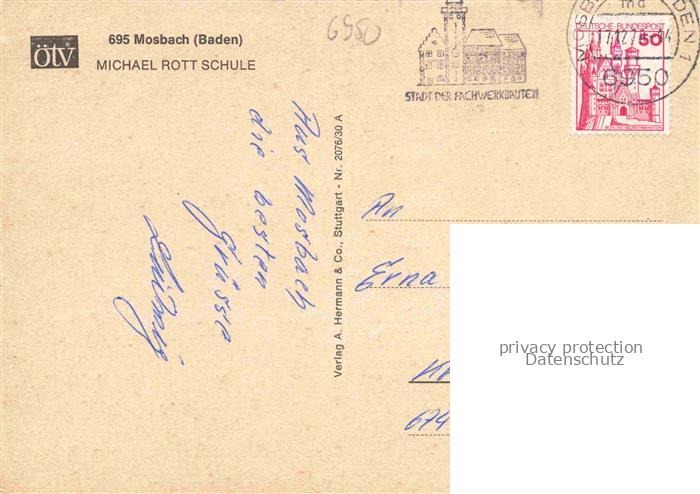 ötv
695 Mosbach (Baden)
MICHAEL ROTT SCHULE
6950
STADT DER FACHWERKBAUTEN
DEUTSCHE BUNDESPOST
50
6950
Aus Mosbach
die besten
Grüsse
Ludwig
Verlag A. Hermann & Co., Stuttgart - Nr. 2076/30 A
An
Erna
674
privacy protection
Datenschutz